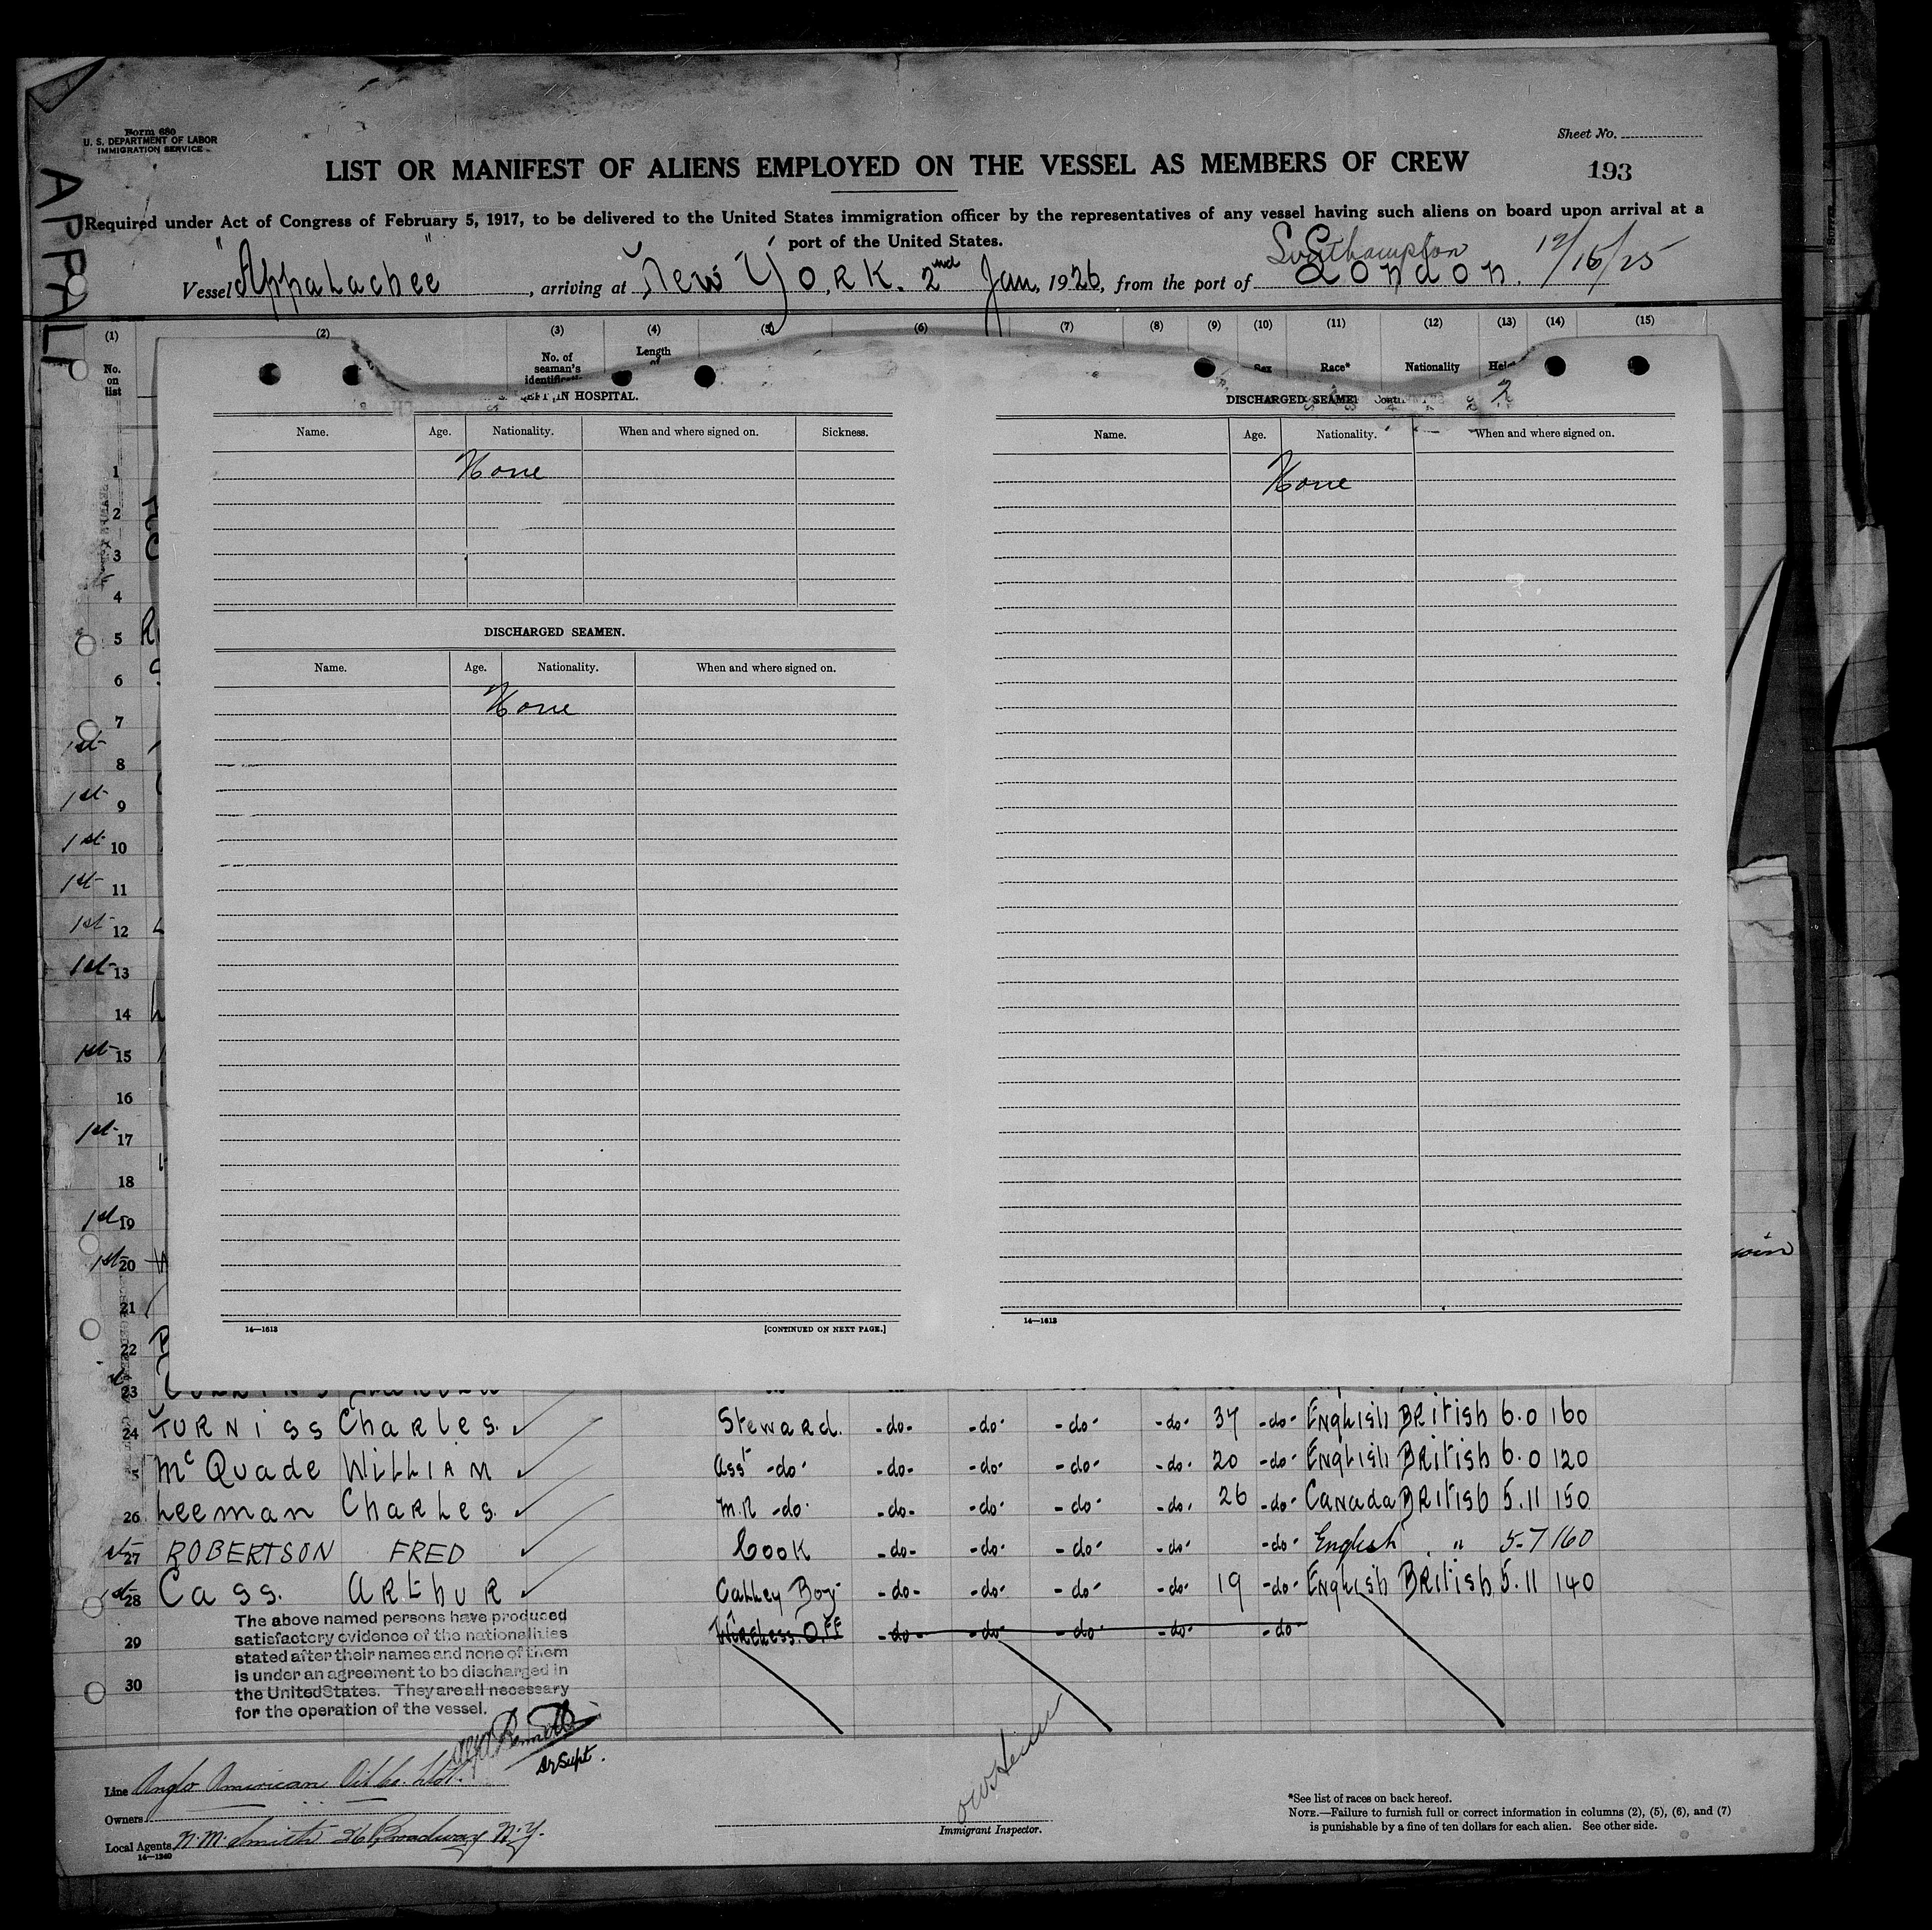 Form 680
U. S. DEPARTMENT OF LABOR
IMMIGRATION SERVICE
Sheet No.
APPAL
LIST OR MANIFEST OF ALIENS EMPLOYED ON THE VESSEL AS MEMBERS OF CREW
193
Required under Act of Congress of February 5, 1917, to be delivered to the United States immigration officer by the representatives of any vessel having such aliens on board upon arrival at a
port of the United States.
Southampton 12/16/25
Vessel "Appalachee", arriving at New York. 2nd Jan, 1926, from the port of London.
(1) (2) (3) (4) (5) (6) (7) (8) (9) (10) (11) (12) (13) (14) (15)
No. on list No. of seaman's Length Sex Race* Nationality
IN HOSPITAL.
Name. Age. Nationality. When and where signed on. Sickness.
None
DISCHARGED SEAMEN.
Name. Age. Nationality. When and where signed on.
None
14—1613 [CONTINUED ON NEXT PAGE.]
DISCHARGED SEAMEN
2
Name. Age. Nationality. When and where signed on.
None
14—1613
1
2
3
4
5
6
7
1st 8
1st 9
1st 10
1st 11
1st 12
1st 13
14
1st 15
16
1st 17
18
1st 19
1st 20
21
22
23
24 TURNISS Charles. Steward. -do- -do- -do- -do- 37 -do- English British 6.0 160
5 McQuade William Asst -do- -do- -do- -do- -do- 20 -do- English British 6.0 120
26 Leeman Charles. M.R -do- -do- -do- -do- -do- 26 -do- Canada British 5.11 150
27 ROBERTSON FRED Cook -do- -do- -do- -do- -do- English " 5-7 160
28 Cass. Arthur Galley Boy -do- -do- -do- -do- 19 -do- English British 5.11 140
29 Wireless. Off -do- -do- -do- -do- -do-
30
The above named persons have produced
satisfactory evidence of the nationalities
stated after their names and none of them
is under an agreement to be discharged in
the United States. They are all necessary
for the operation of the vessel.
Line Anglo American Oil Co. Ltd.
Owners
Local Agents N.M. Smith 26 Broadway N.Y.
14—1240
Immigrant Inspector.
*See list of races on back hereof.
NOTE.—Failure to furnish full or correct information in columns (2), (5), (6), and (7)
is punishable by a fine of ten dollars for each alien. See other side.